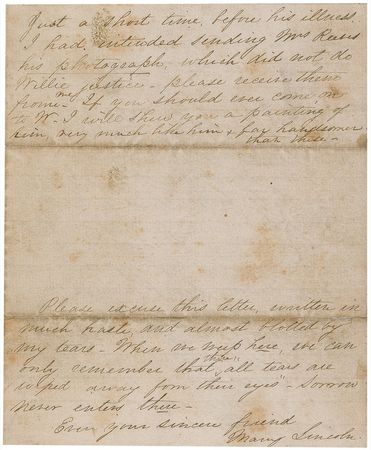 Just a short time, before his illness.
I had intended sending Mrs Rees
his photograph, which did not do
Willie justice - please receive them
from me - If you should ever come on
to W - I will show you a painting of
him, very much like him & far handsomer
than these -
Please excuse this letter, written in
much haste, and almost blotted by
my tears - When we weep here, we can
only remember that "there", all tears are
wiped away from their eyes" - Sorrow
never enters there -
Ever your sincere friend
Mary Lincoln.